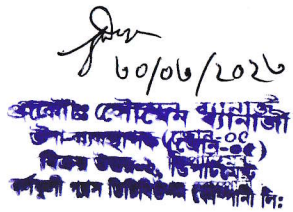 প্রকৌঃ সৌমেন ব্যানার্জী
উপ-ব্যবস্থাপক (জোন-০৫)
বিক্রয় উত্তর-২, ডিপার্টমেন্ট
কর্ণফুলী গ্যাস ডিস্ট্রিবিউশন কোম্পানী লিঃ